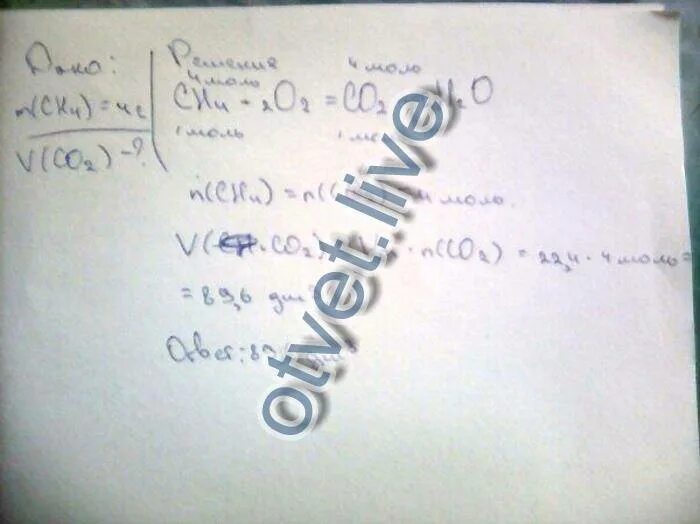 Дано:
n(CH4) = 4
V(CO2) - ?
Решения
4 моль 4 моль
CH4 + 2O2 = CO2 H2O
1 моль 1
n(CH4) = n( 4 моль.
V( CO2) · n(CO2) = 22,4 · 4 моль =
= 89,6 дм
Ответ: 89
otvet.live